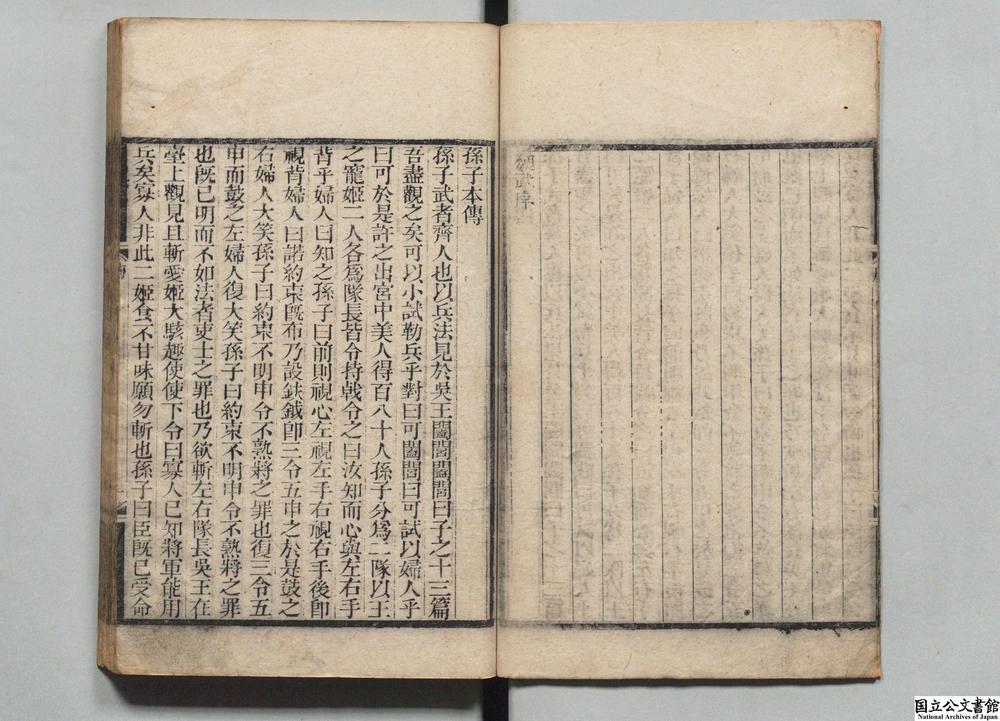 魏武序
孫子本傳
孫子武者齊人也以兵法見於吳王闔閭闔閭曰子之十三篇
吾盡觀之矣可以小試勒兵乎對曰可闔閭曰可試以婦人乎
曰可於是許之出宮中美人得百八十人孫子分爲二隊以王
之寵姬二人各爲隊長皆令持戟令之曰汝知而心與左右手
背乎婦人曰知之孫子曰前則視心左視左手右視右手後卽
視背婦人曰諾約束旣布乃設鈇鉞卽三令五申之於是鼓之
右婦人大笑孫子曰約束不明申令不熟將之罪也復三令五
申而鼓之左婦人復大笑孫子曰約束不明申令不熟將之罪
也旣已明而不如法者吏士之罪也乃欲斬左右隊長吳王在
臺上觀見且斬愛姬大駭趣使使下令曰寡人已知將軍能用
兵矣寡人非此二姬食不甘味願勿斬也孫子曰臣旣已受命
国立公文書館
National Archives of Japan